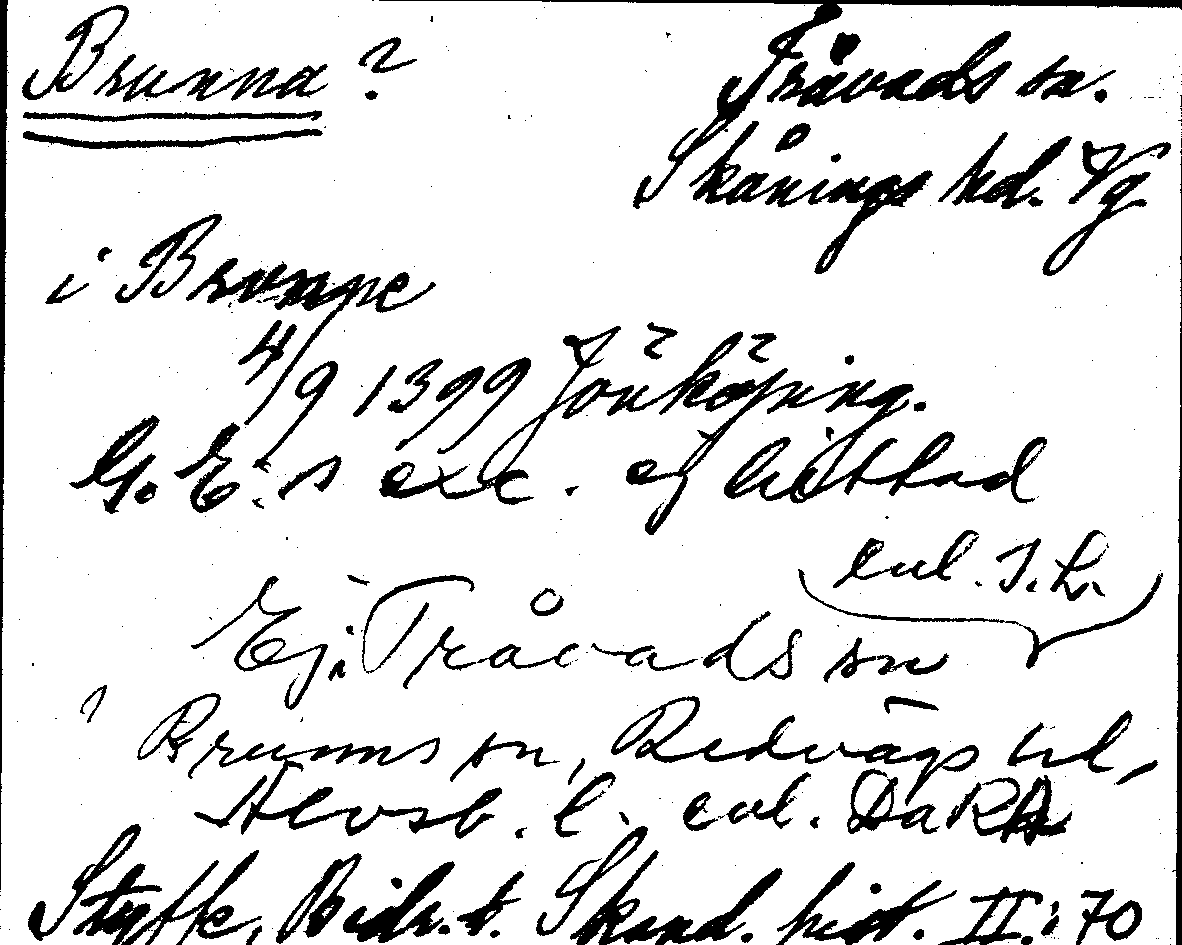 Brunna?
Tråvads sn.
Skånings hd. Vg
i Brunne
4/9 1399 Jönköping.
G. E:s exc. ej hittad
enl. I. L.
Ej i Tråvads sn
? Brunns sn, Redvägs hd,
Älvsb. l. enl. DaRA
Styffe, Bidr. t. Skand. hist. II: 70